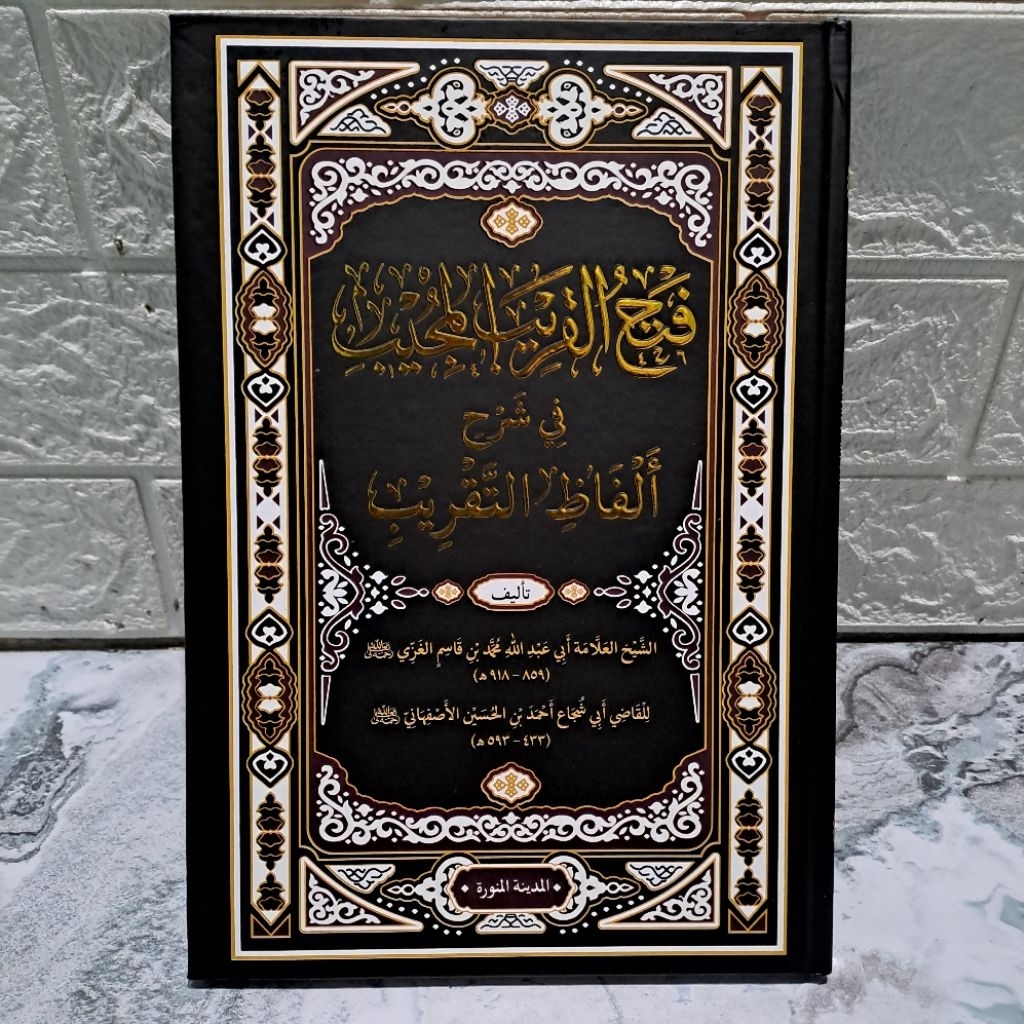 فَتْحُ القَرِيْبِ المُجِيْبِ
فِي شَرْحِ
أَلْفَاظِ التَّقْرِيْبِ
تأليف
الشَّيْخ العَلَّامَة أَبِي عَبْدِ اللهِ مُحَمَّد بْنِ قَاسِمِ الغَزِّي رَحِمَهُ اللهُ
(٨٥٩ - ٩١٨ هـ)
لِلْقَاضِي أَبِي شُجَاع أَحْمَدَ بْنِ الحُسَيْن الأَصْفِهَانِيّ رَحِمَهُ اللهُ
(٤٣٣ - ٥٩٣ هـ)
المدينة المنورة